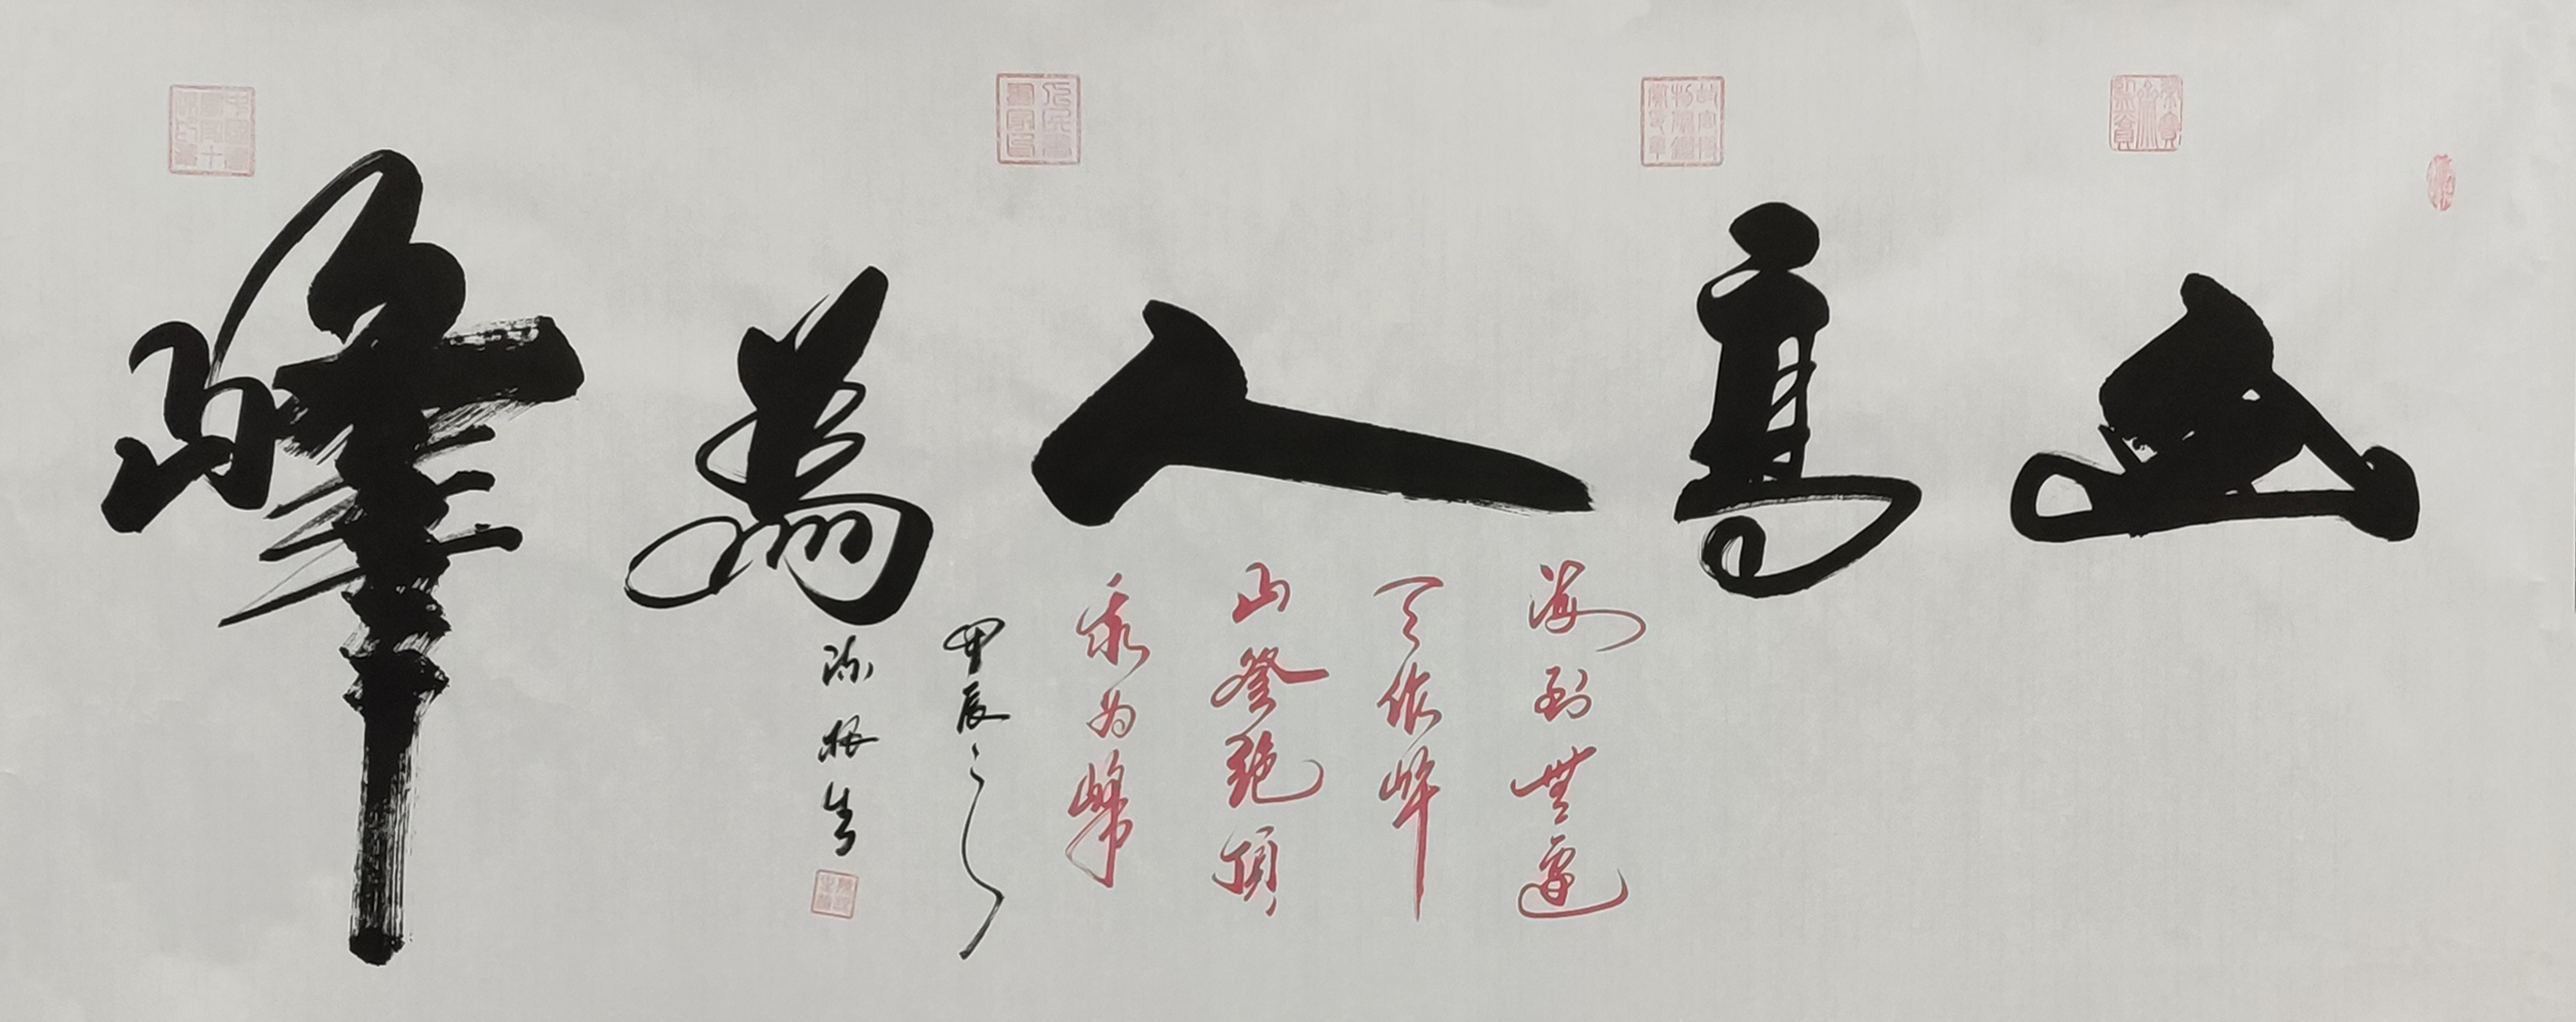 山高人為峰
海到無邊
天作岸
山登絕頂
我为峰
甲辰之
陈根生